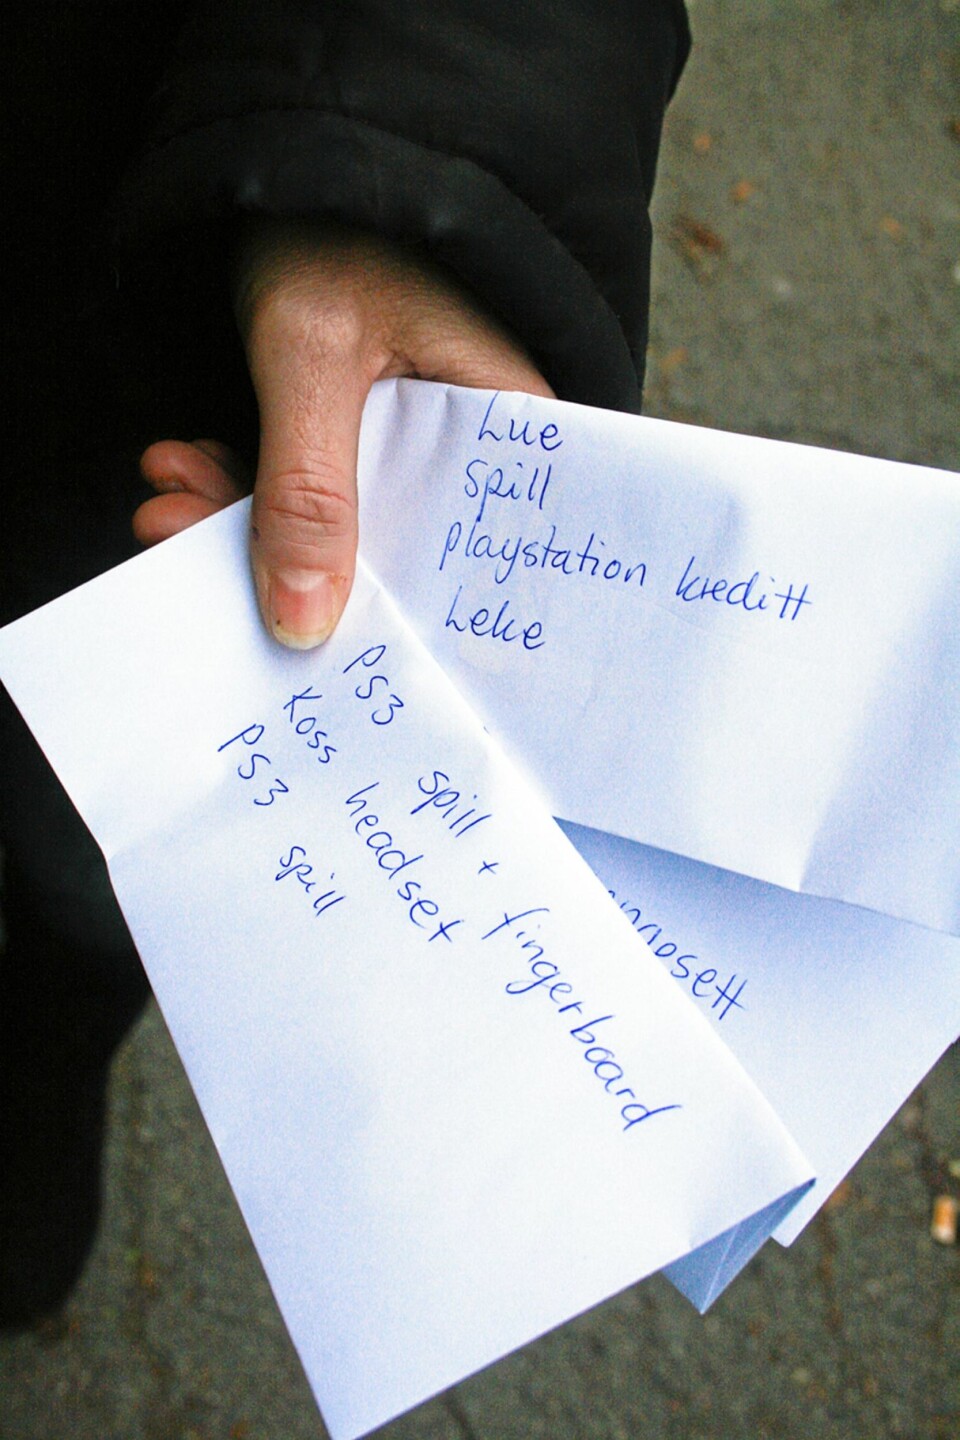 Lue
Spill
playstation kreditt
Leke
PS3 spill + fingerboard
Koss headset
PS3 spill